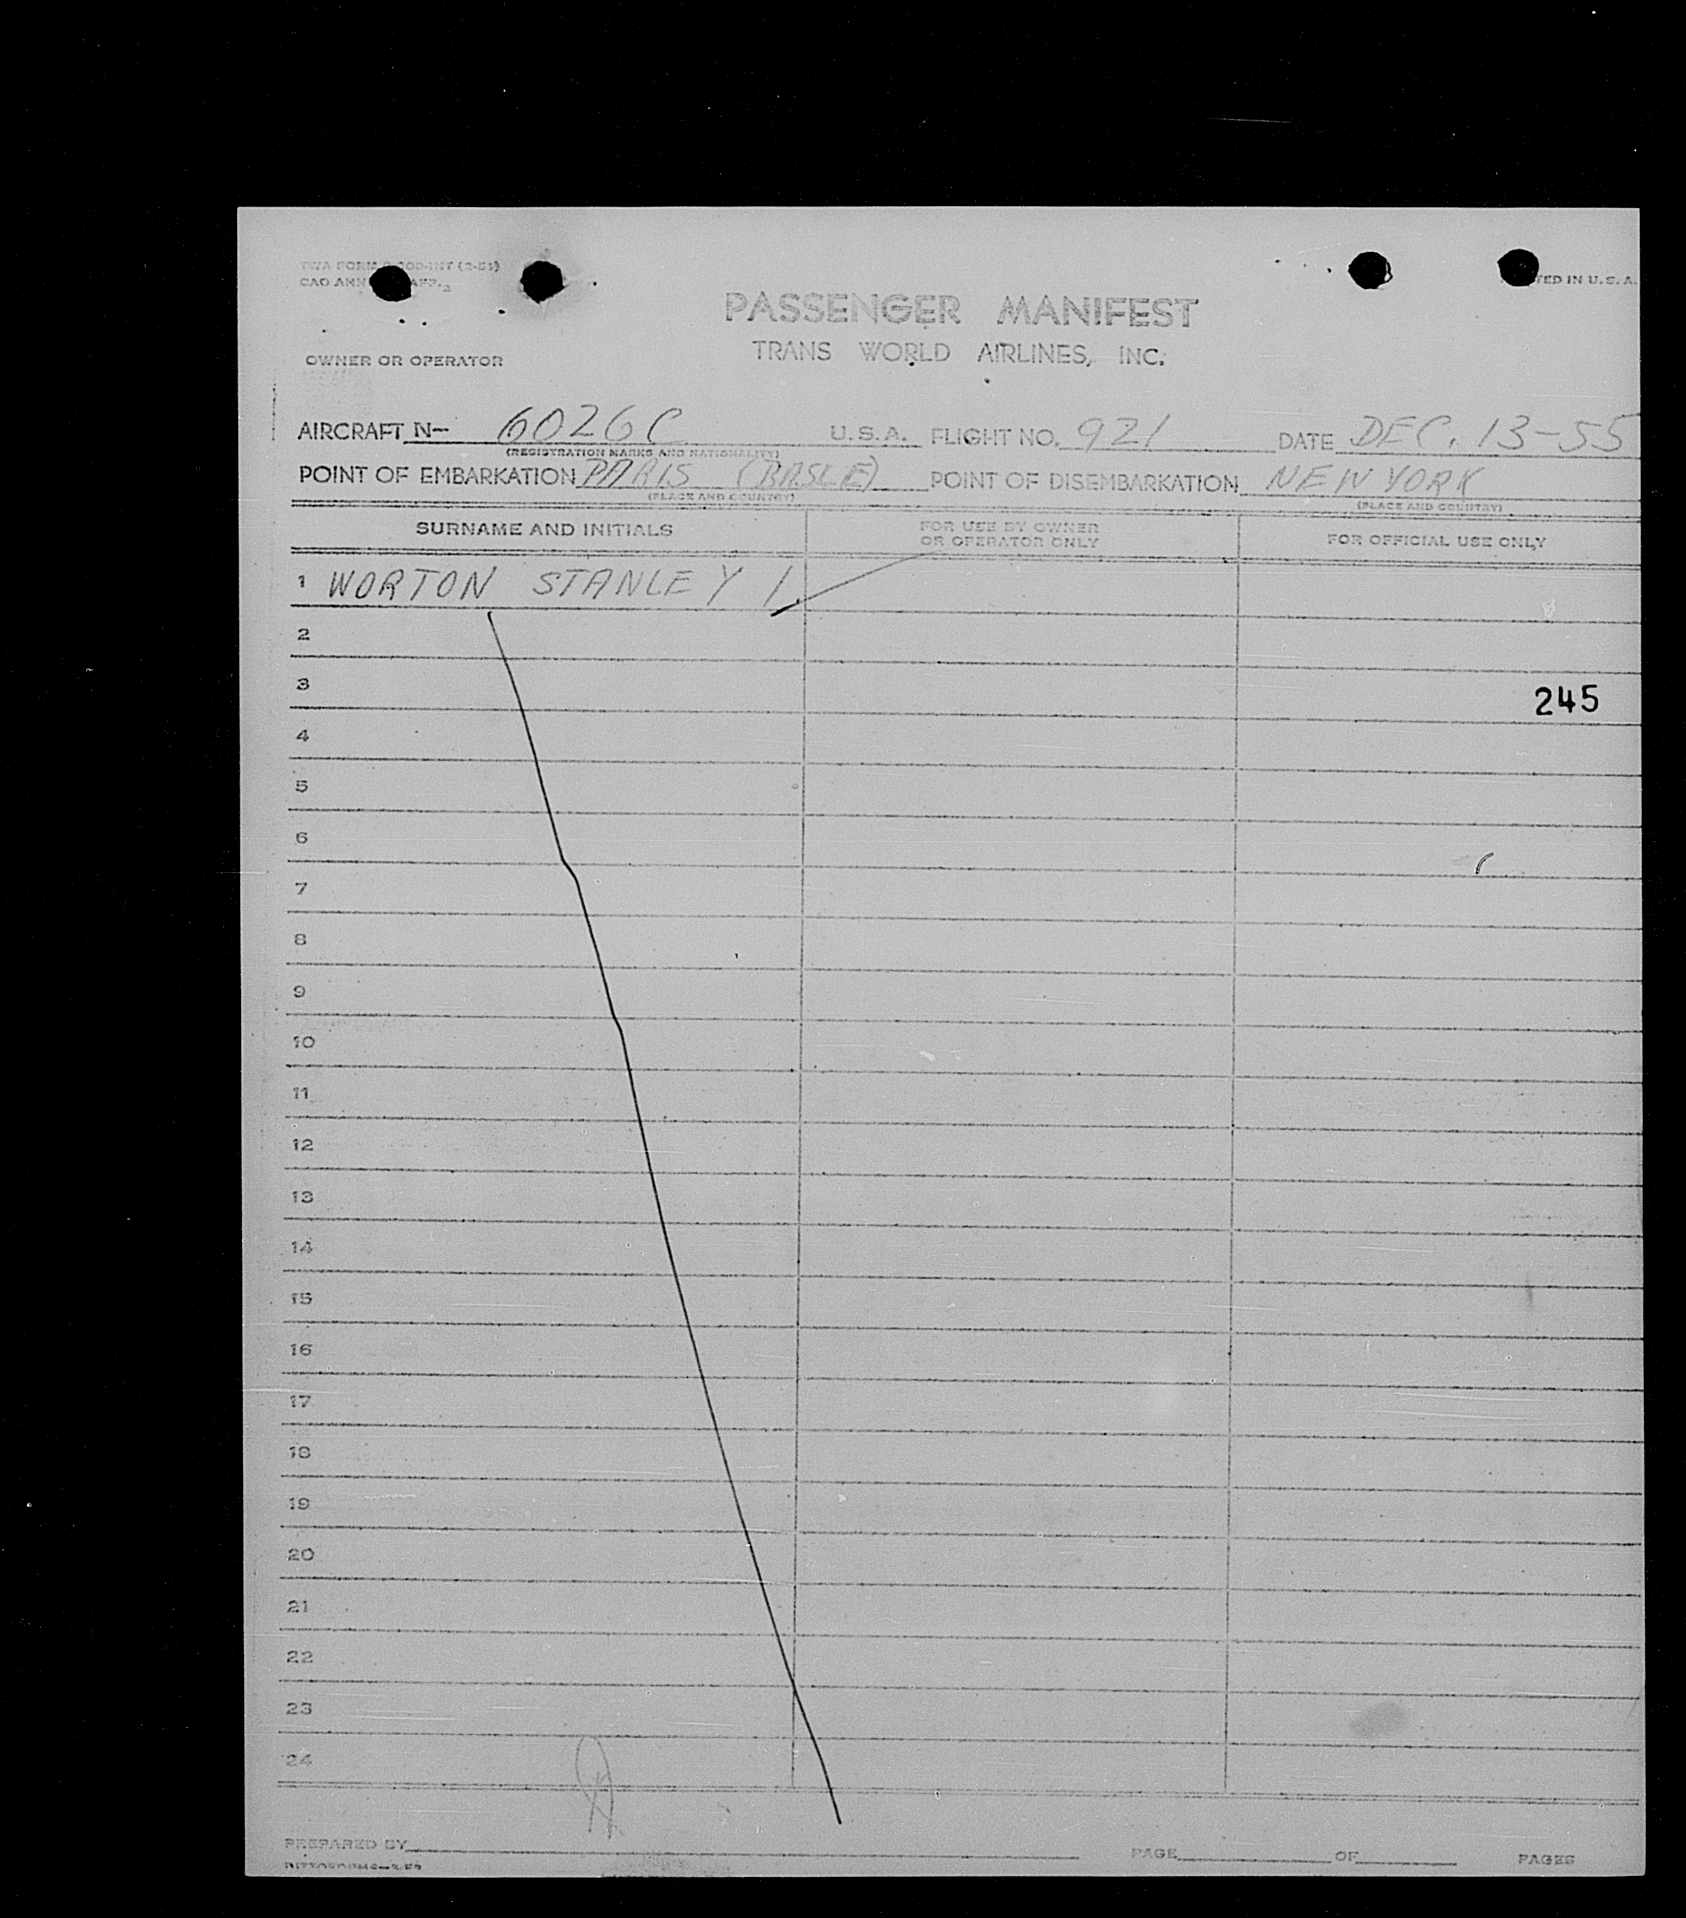 TWA FORM
CAO ANN
TED IN U.S.A.
PASSENGER MANIFEST
TRANS WORLD AIRLINES, INC.
OWNER OR OPERATOR
AIRCRAFT N- 6026C U.S.A. FLIGHT NO. 921 DATE DEC. 13-55
(REGISTRATION MARKS AND NATIONALITY)
POINT OF EMBARKATION PARIS (BASLE) POINT OF DISEMBARKATION NEW YORK
(PLACE AND COUNTRY) (PLACE AND COUNTRY)
SURNAME AND INITIALS FOR USE BY OWNER OR OPERATOR ONLY FOR OFFICIAL USE ONLY
1 WORTON STANLEY 1.
2
3 245
4
5
6
7
8
9
10
11
12
13
14
15
16
17
18
19
20
21
22
23
24
PREPARED BY PAGE OF PAGES